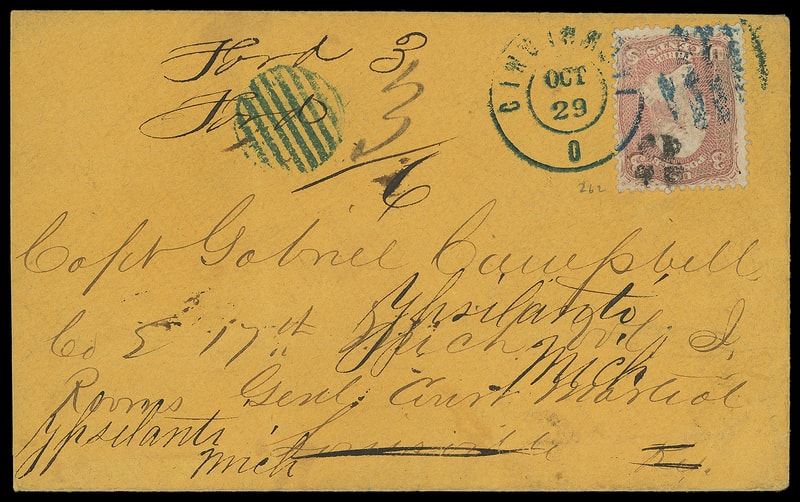 Ford 3
Ford 3
6
CINCINNATI
OCT
29
O
262
Capt Gabriel Campbell
Co E 17th Mich Vol. I.
Ypsilanti
Mich
Rooms Genl. Court Martial
Louisville Ky.
Ypsilanti
Mich